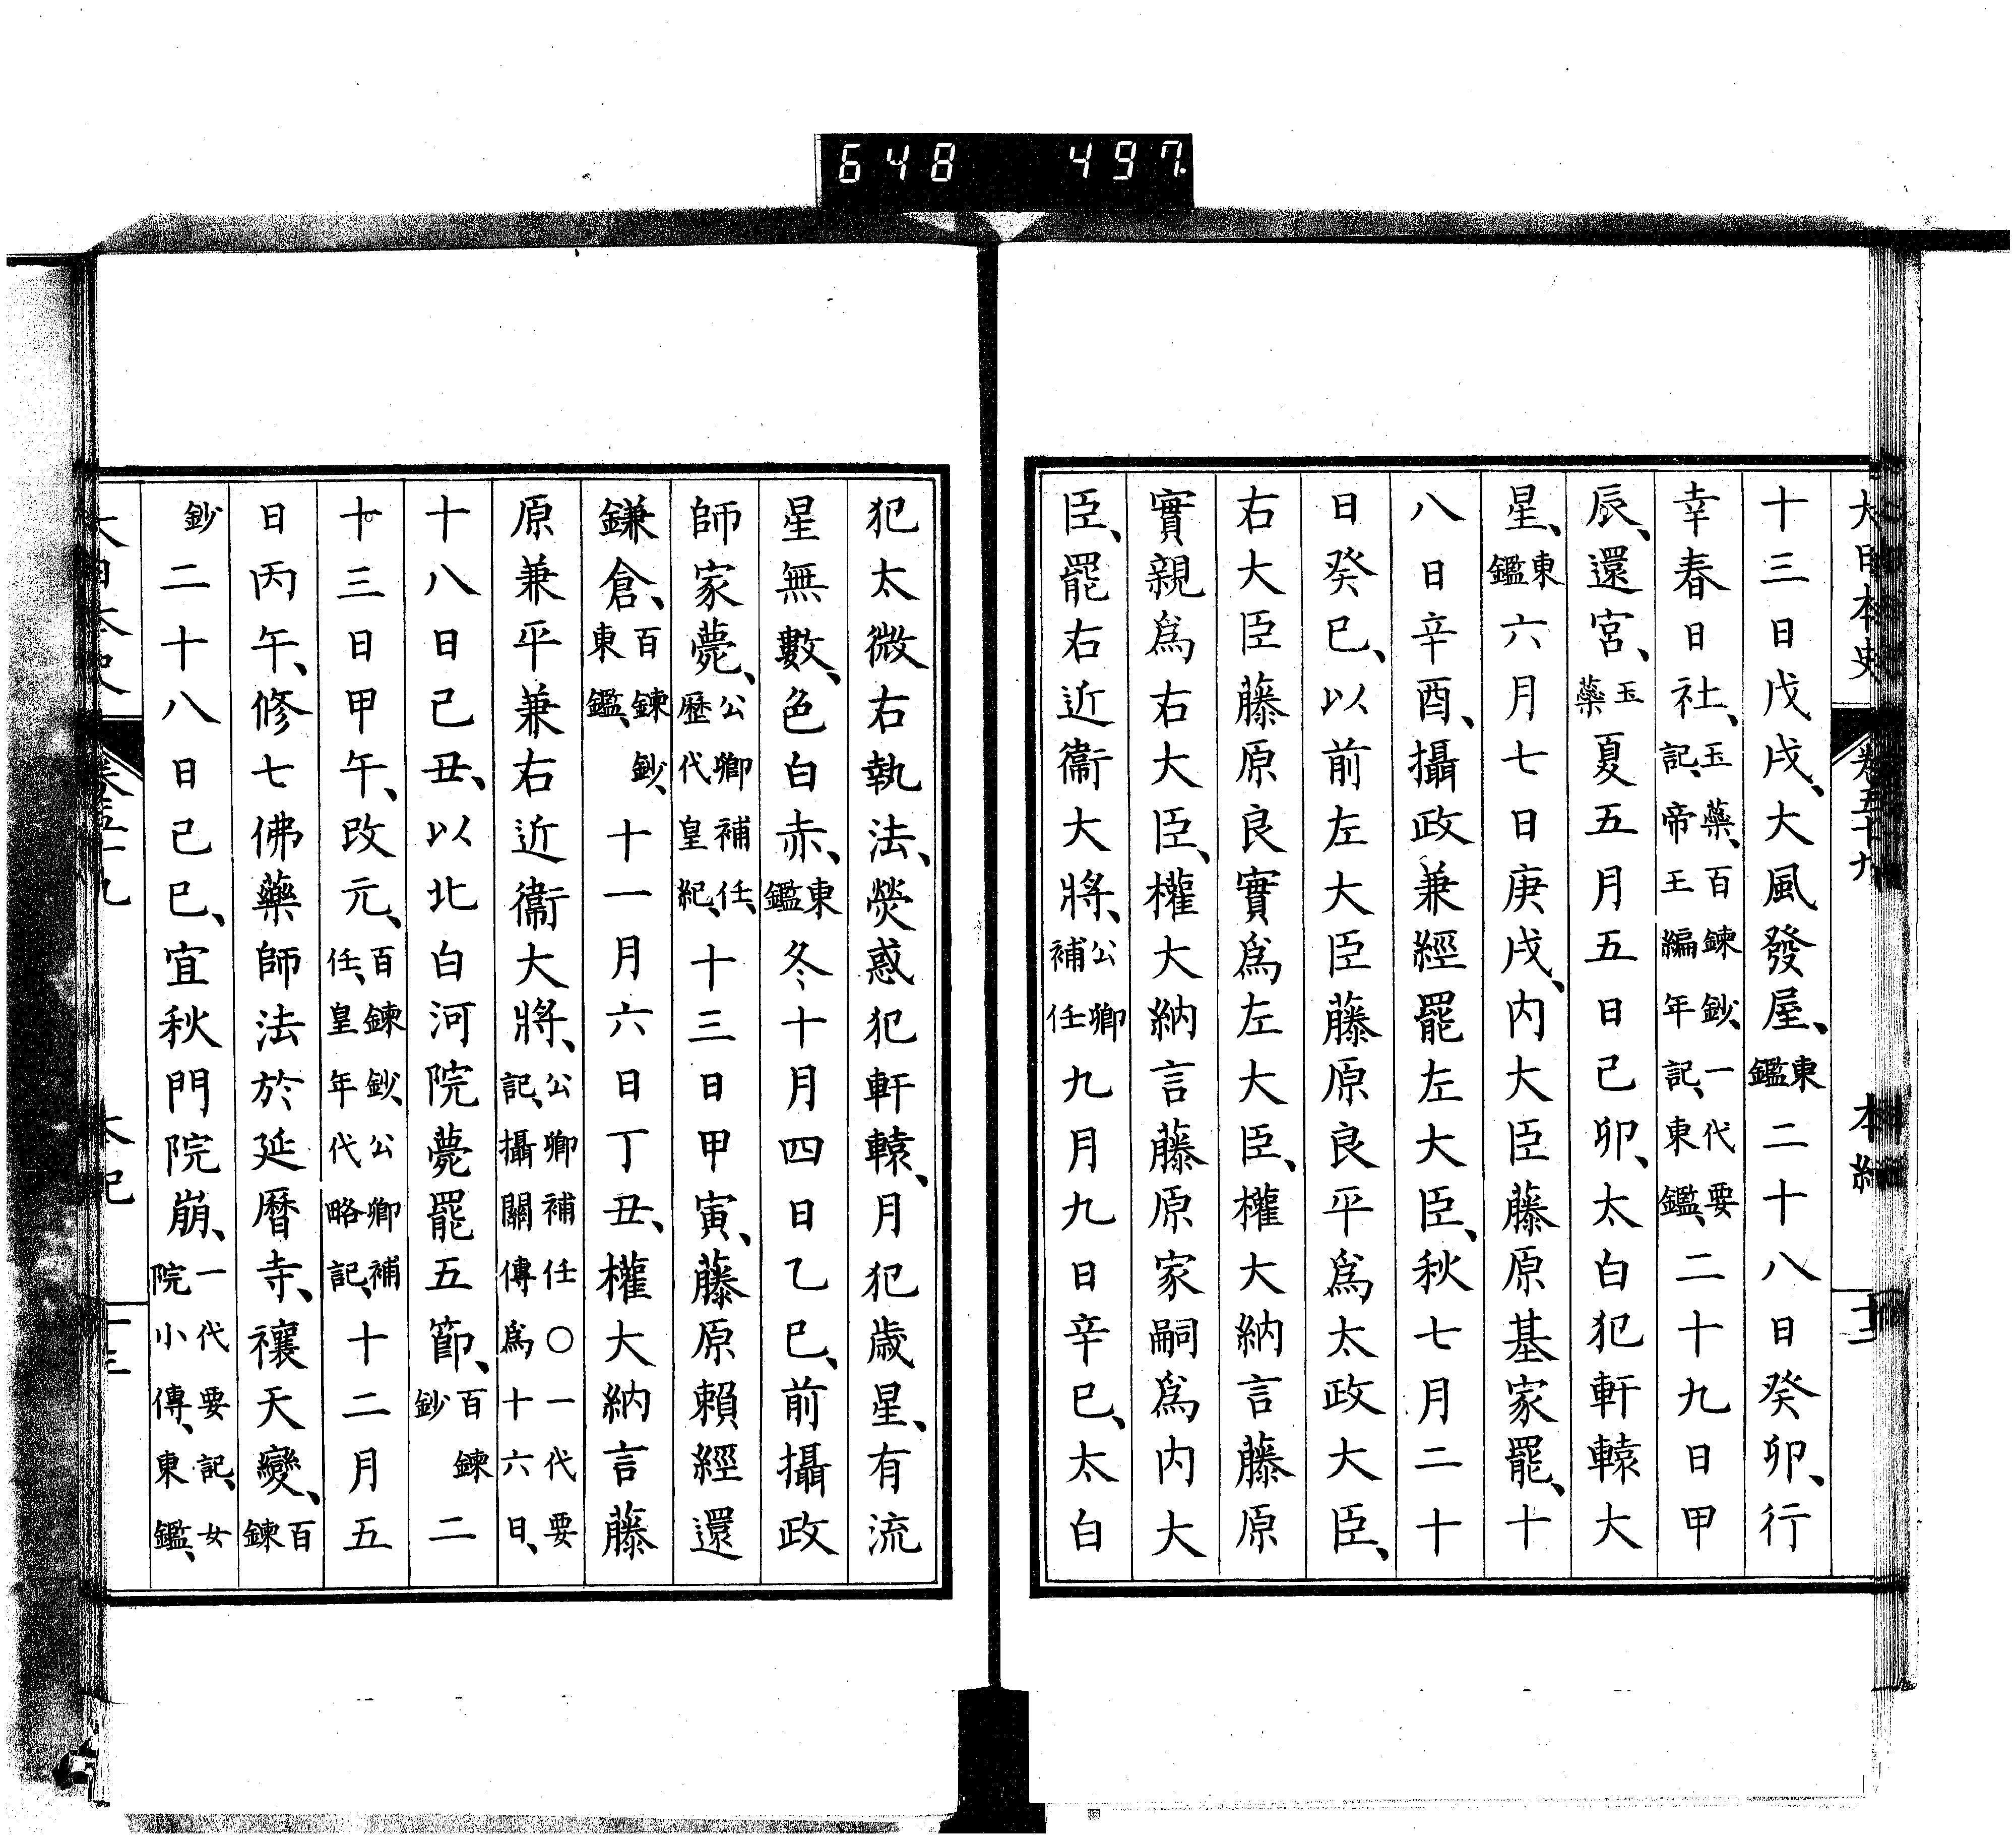 648 497
大日本史 卷五十九 本紀 十二
十三日戊戌、大風發屋、東鑑二十八日癸卯、行
幸春日社、玉藥、百鍊鈔、一代要記、帝王編年記、東鑑、二十九日甲
辰、還宮、玉藥夏五月五日己卯、太白犯軒轅大
星、東鑑六月七日庚戌、内大臣藤原基家罷、十
八日辛酉、攝政兼經罷左大臣、秋七月二十
日癸巳、以前左大臣藤原良平爲太政大臣、
右大臣藤原良實爲左大臣、權大納言藤原
實親爲右大臣、權大納言藤原家嗣爲内大
臣、罷右近衞大將、公卿補任九月九日辛巳、太白
犯太微右執法、熒惑犯軒轅、月犯歲星、有流
星無數、色白赤、東鑑冬十月四日乙巳、前攝政
師家薨、公卿補任、歷代皇紀、十三日甲寅、藤原賴經還
鎌倉、百鍊鈔、東鑑、十一月六日丁丑、權大納言藤
原兼平兼右近衞大將、公卿補任○一代要記、攝關傳爲十六日、
十八日己丑、以北白河院薨罷五節、百鍊鈔二
十三日甲午、改元、百鍊鈔、公卿補任、皇年代略記、十二月五
日丙午、修七佛藥師法於延曆寺、禳天變、百鍊
鈔二十八日己巳、宜秋門院崩、一代要記、女院小傳、東鑑、
大日本史 卷五十九 本紀 十三